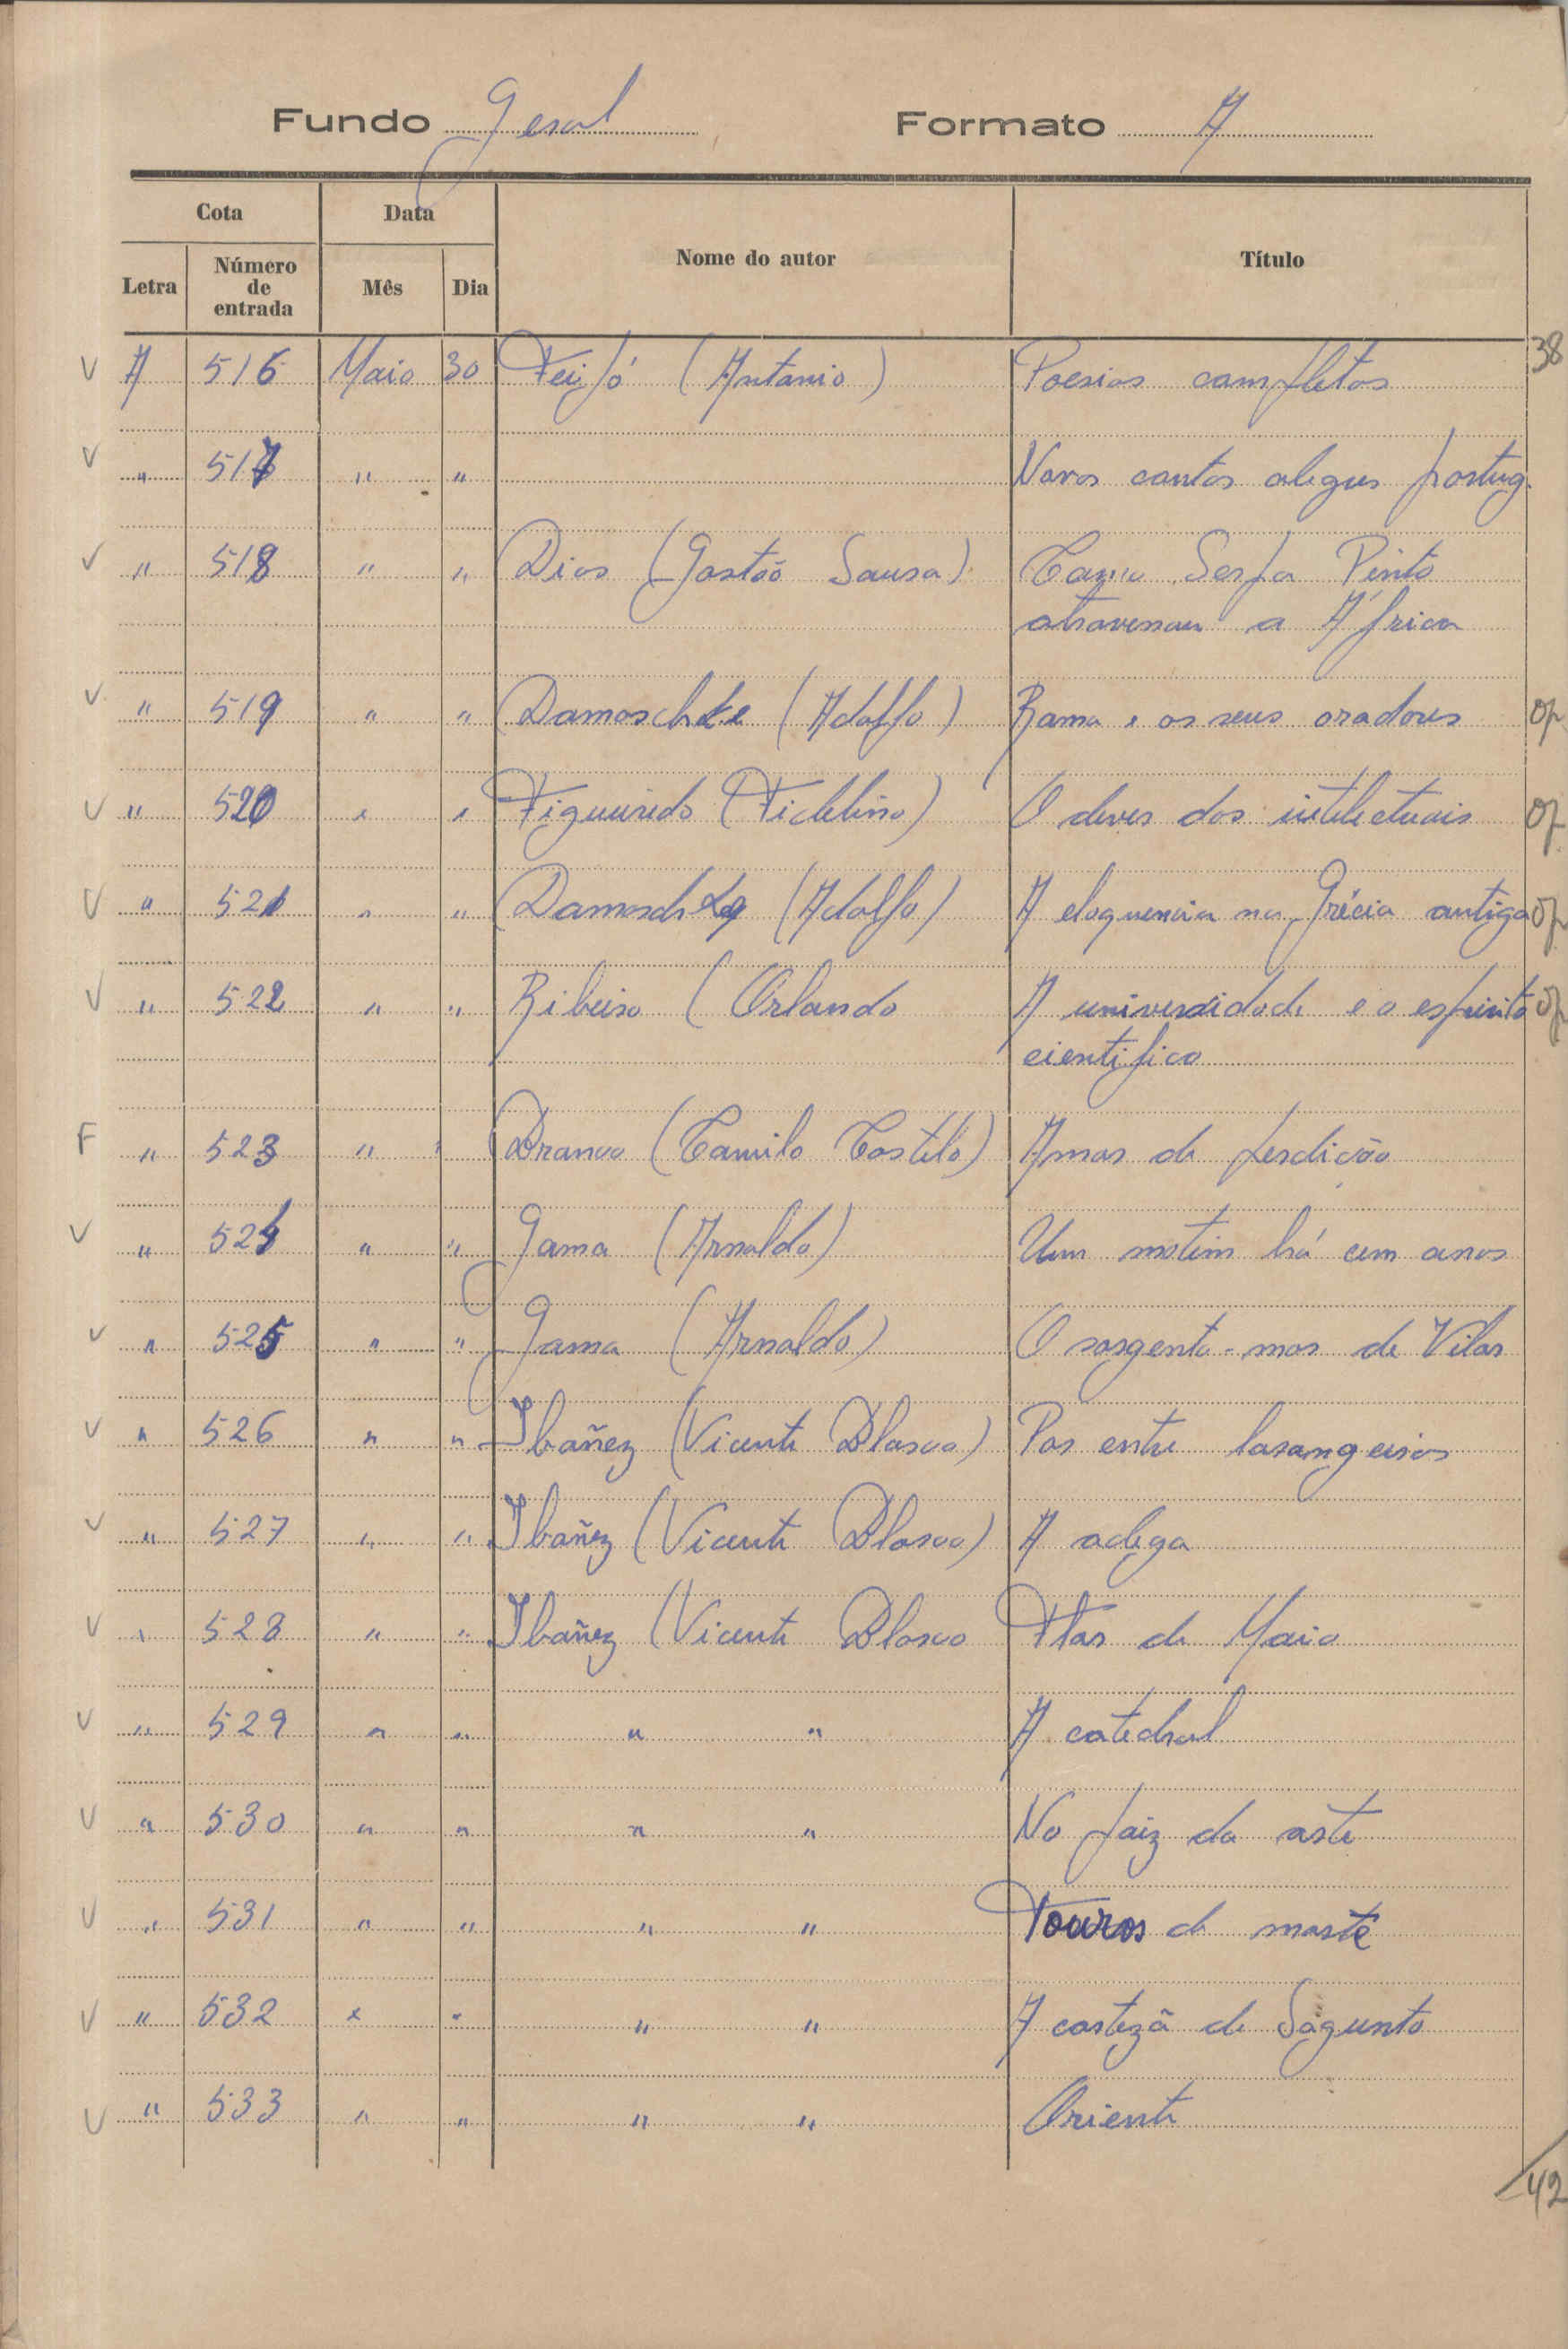 Fundo Geral Formato A
Cota Data Nome do autor Título
Letra Número de entrada Mês Dia
38
V A 516 Maio 30 Feijó (Antonio) Poesias completas
V " 517 " " Novos contos alegres portug.
V " 518 " " Dias (Gastão Sousa) Como Serpa Pinto
atravessou a África
V " 519 " " Damaschke (Adolfo) Roma e os seus oradores Op
V " 520 " " Figueiredo (Fidelino) O dever dos intelectuais Op
V " 521 " " Damaschke (Adolfo) A eloquencia na Grécia antiga Op
V " 522 " " Ribeiro (Orlando A universidade e o espirito Op
cientifico
F " 523 " " Branco (Camilo Castelo) Amor de perdição
V " 524 " " Gama (Arnaldo) Um motim há cem anos
V " 525 " " Gama (Arnaldo) O sargento-mor de Vilar
V " 526 " " Ibañez (Vicente Blasco) Por entre laranjeiras
V " 527 " " Ibañez (Vicente Blasco) A adega
V " 528 " " Ibañez (Vicente Blasco Flor de Maio
V " 529 " " " " A catedral
V " 530 " " " " No paiz da arte
V " 531 " " " " Touros de morte
V " 532 " " " " A cortezã de Sagunto
V " 533 " " " " Oriente
42